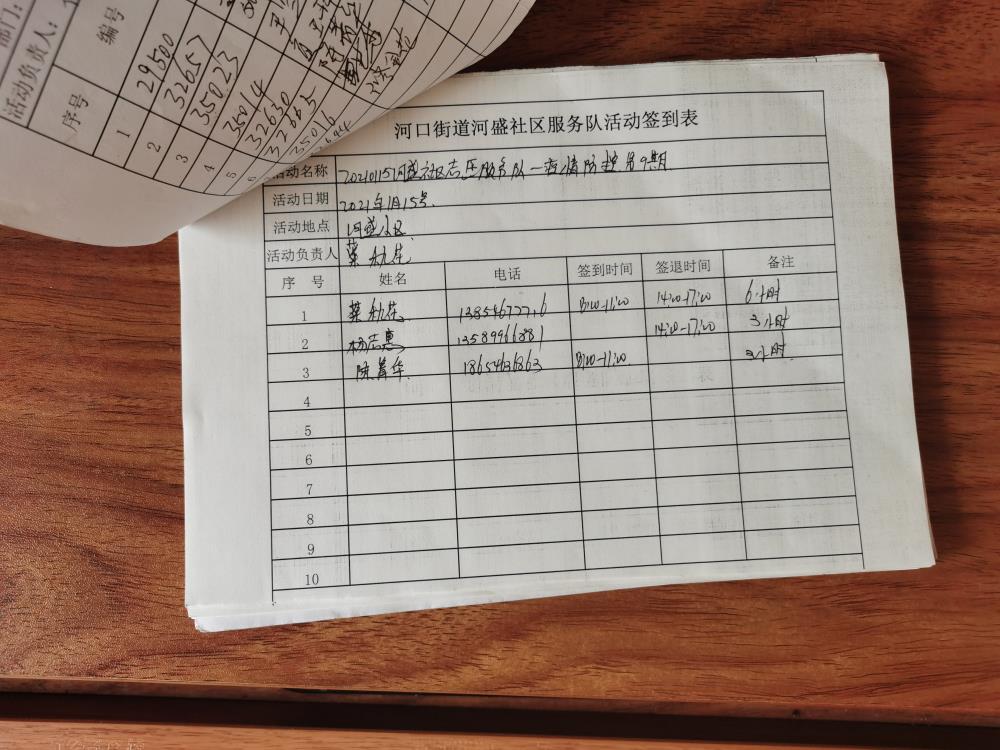 部门：
活动负责人：
序号 编号
1 29500
2 32657
3 35023
4 35014
5 32630
6 32865
35016
河口街道河盛社区服务队活动签到表
活动名称 20210115河盛社区志愿服务队一疫情防控第9期
活动日期 2021年1月15号.
活动地点 河盛社区
活动负责人
序 号 姓名 电话 签到时间 签退时间 备注
1 8:00-11:00 14:00-17:00 6小时
2 杨志惠 13589966881 14:00-17:00 3小时
3 18654636863 8:00-11:00 3小时
4
5
6
7
8
9
10